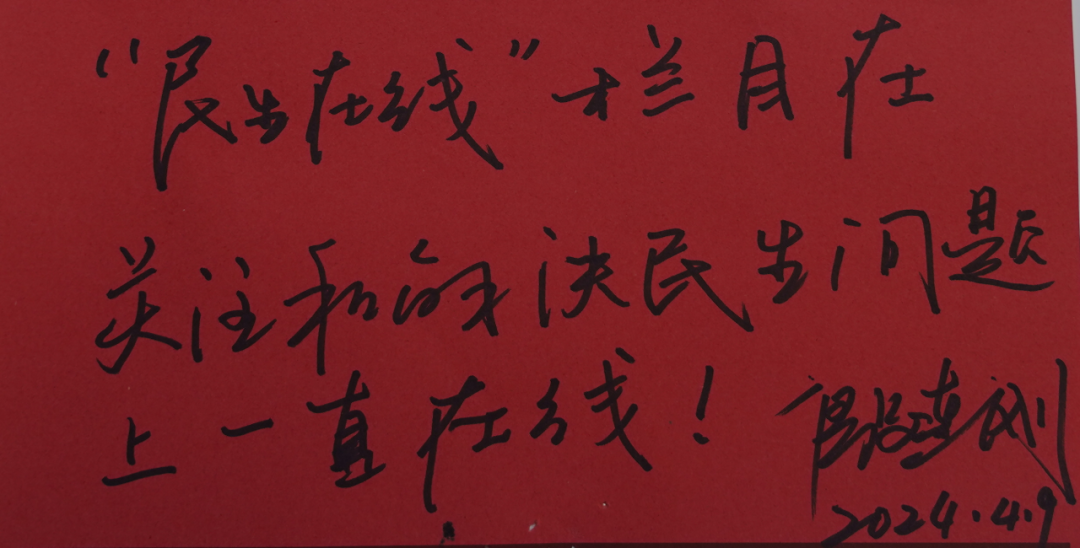 “民生在线”栏目在
关注和解决民生问题
上一直在线！
2024.4.9